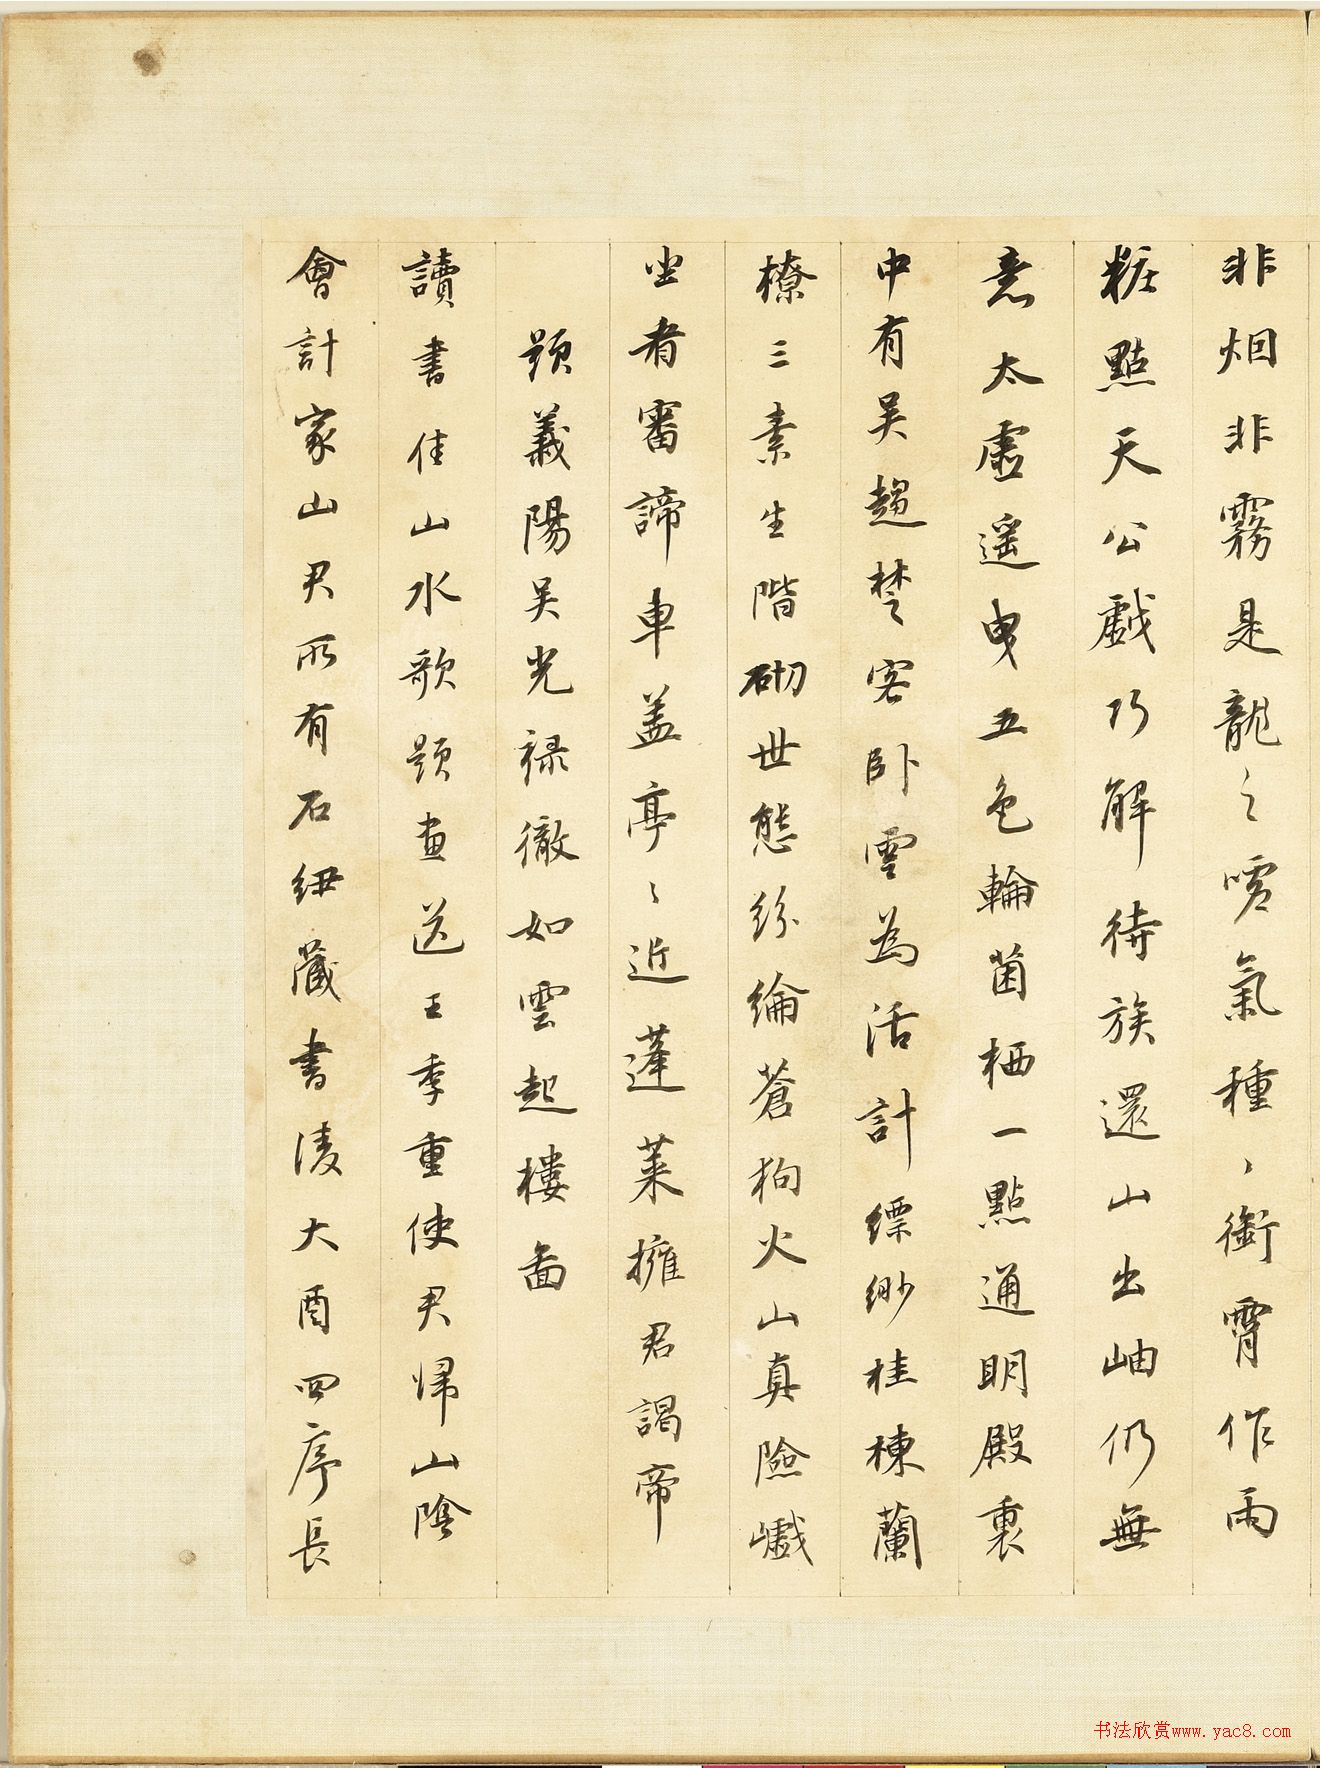 非烟非霧是龍之噓氣種、衝霄作雨
粧點天公戲巧解待族還山出岫仍無
意太虛遥曳五色輪菌栖一點通明殿裏
中有吴趨楚客卧雲為活計縹缈桂棟蘭
橑三素生階砌世態紛綸蒼狗火山真險巇
坐者審諦車盖亭〻近蓬莱擁君謁帝
題義陽吴光禄徹如雲起樓畗
讀書佳山水歌題畫送王季重使君歸山陰
會計家山君所有石紐藏書淩大酉四序長
书法欣赏www.yac8.com